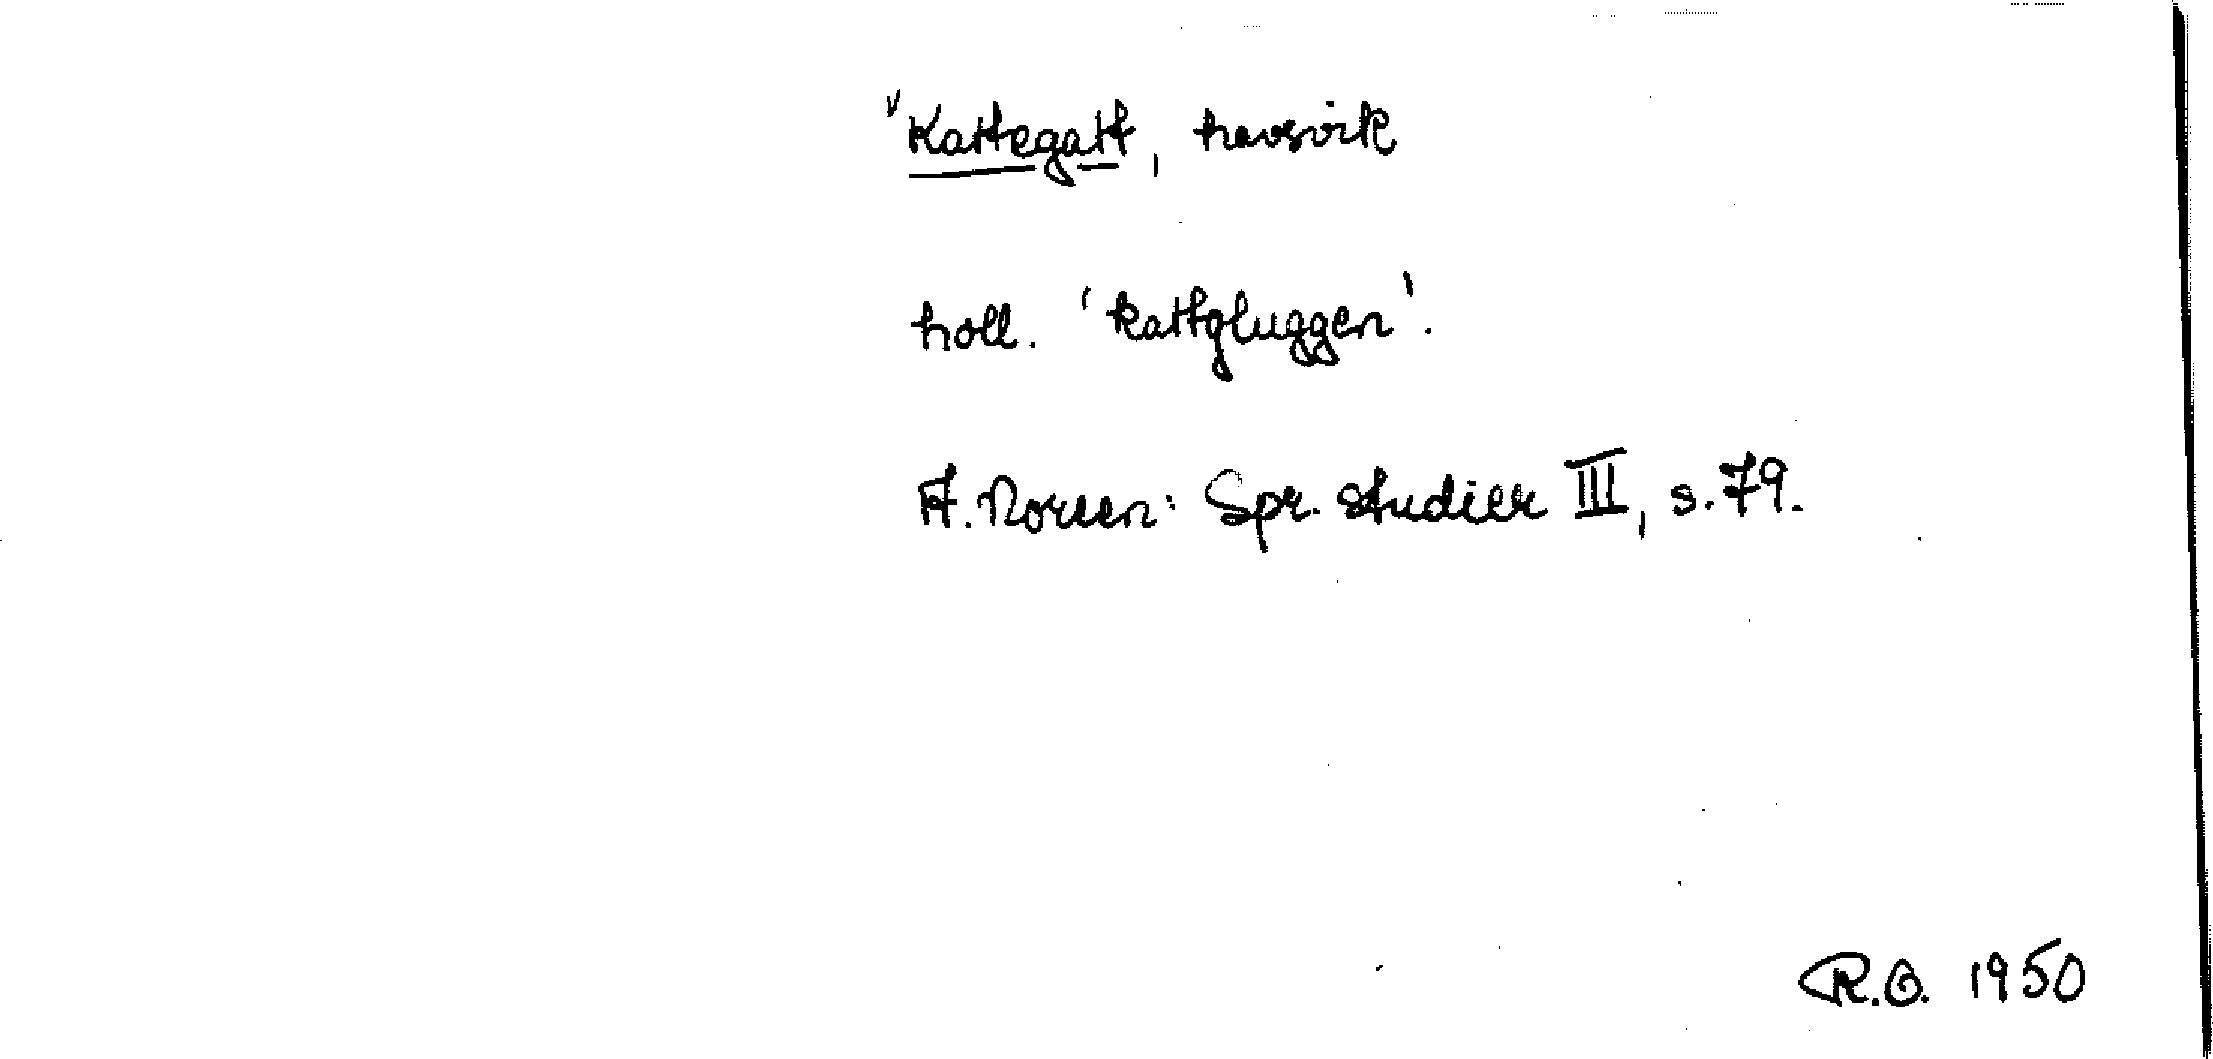 ᵛKattegatt, havsvik
holl. 'kattgluggen'.
A. Noreen: Spr. studier III, s. 79.
R.O. 1950